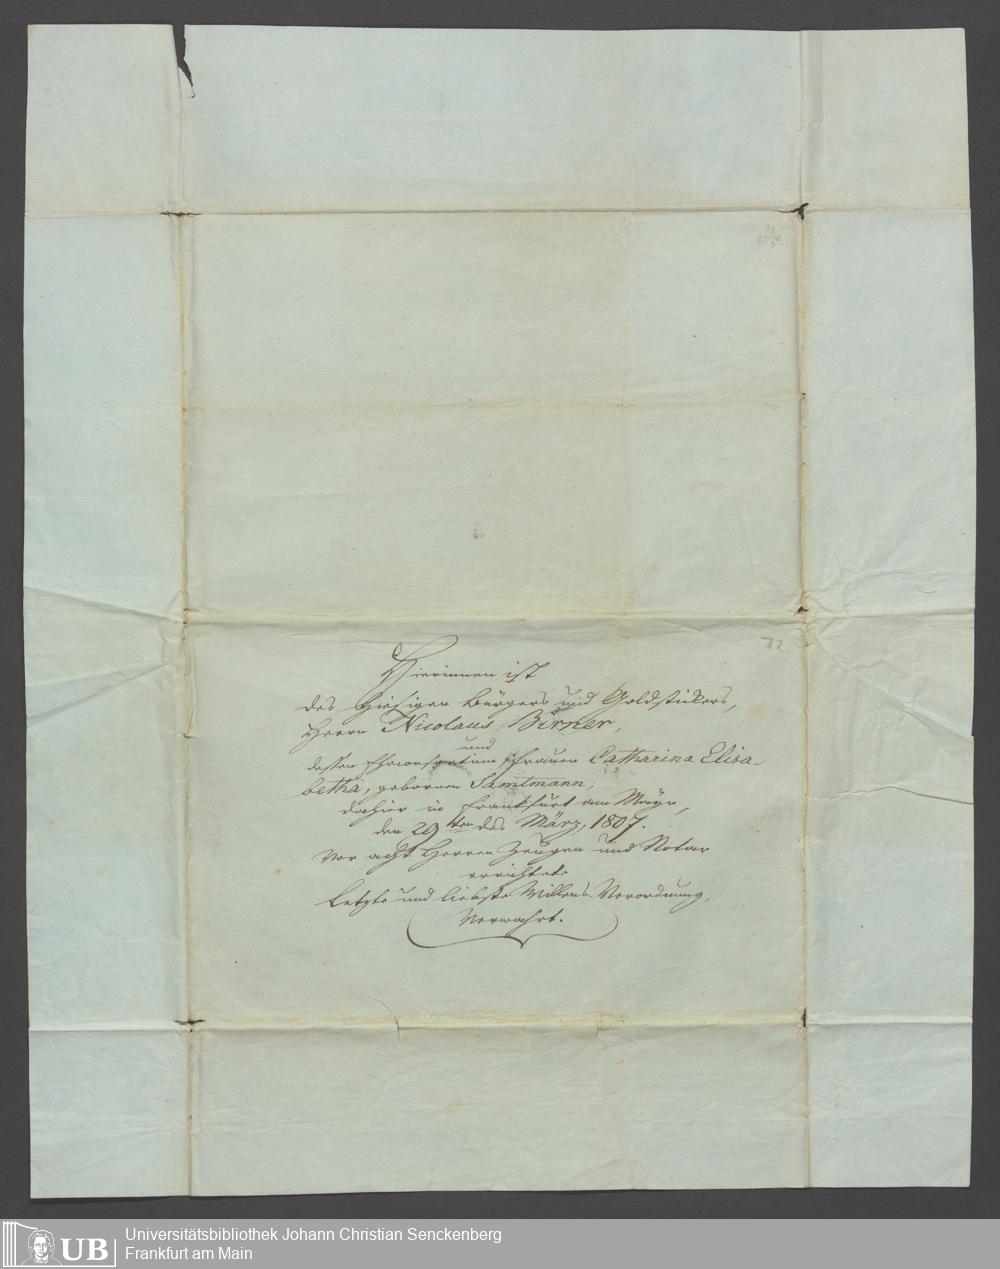 72
Hierinnen ist
des hiesigen Bürgers und Goldstickers,
Herrn Nicolaus Birner,
und
dessen Ehconsortium Frauen Catharina Elisa-
betha, gebornen Samtmann,
dahier in Frankfurt am Mayn,
den 29ten des März, 1807.
vor acht Herren Zeugen und Notar
errichtete
Letzte und liebste Willens Verordnung,
Verwahrt.
UB
Universitätsbibliothek Johann Christian Senckenberg
Frankfurt am Main